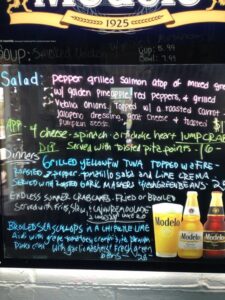 Modelo
1925
Soup: Smoked Chicken
Cup 5.99
Bowl 7.99
Salad: pepper grilled salmon atop of mixed greens
w/ golden pineapple, red peppers, & grilled
Vidalia onions. Topped w/ a roasted carrot
Jalapeno dressing, goat cheese & toasted
Pumpkin seeds
APP - 4 cheese - spinach - artichoke heart Jump CRAB
Dip Served with Toasted pita points - 16
Dinners
Grilled Yellowfin Tuna Topped w/ Fire-
Roasted pepper tomatillo salsa and lime CREMA
Served with loaded
Endless Summer Crabcakes - Fried or Broiled
Served with Fries, Slaw
Broiled Sea Scallops in a Chipotle Lime
Aioli with grape tomatoes
with
beans - 28
Modelo